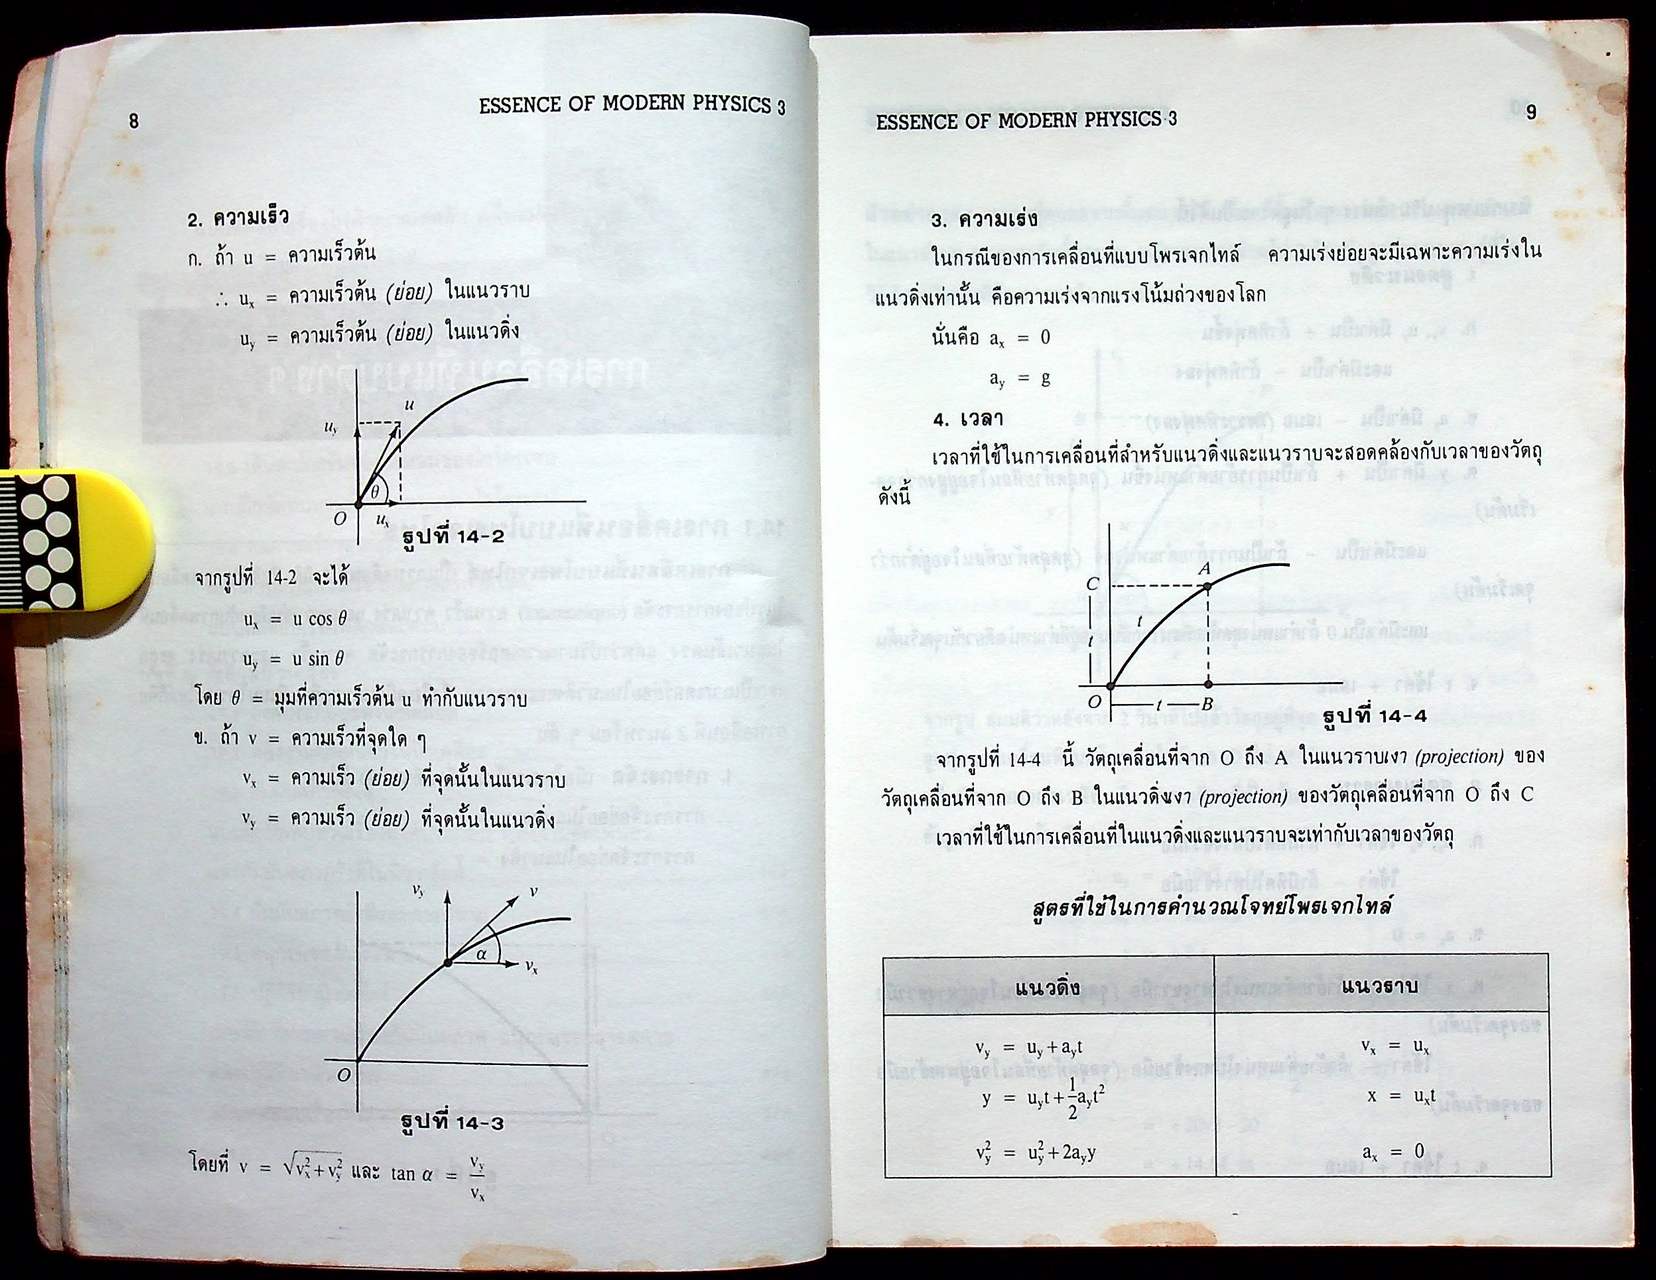 8
ESSENCE OF MODERN PHYSICS 3
2. ความเร็ว
ก. ถ้า u = ความเร็วต้น
∴ uₓ = ความเร็วต้น (ย่อย) ในแนวราบ
u_y = ความเร็วต้น (ย่อย) ในแนวดิ่ง
u
u_y
θ
O
uₓ
รูปที่ 14-2
จากรูปที่ 14-2 จะได้
uₓ = u cos θ
u_y = u sin θ
โดย θ = มุมที่ความเร็วต้น u ทำกับแนวราบ
ข. ถ้า v = ความเร็วที่จุดใด ๆ
vₓ = ความเร็ว (ย่อย) ที่จุดนั้นในแนวราบ
v_y = ความเร็ว (ย่อย) ที่จุดนั้นในแนวดิ่ง
v_y
v
α
vₓ
O
รูปที่ 14-3
โดยที่ v = √(vₓ²+v_y²) และ tan α = v_y/vₓ
ESSENCE OF MODERN PHYSICS 3
9
3. ความเร่ง
ในกรณีของการเคลื่อนที่แบบโพรเจกไทล์ ความเร่งย่อยจะมีเฉพาะความเร่งใน
แนวดิ่งเท่านั้น คือความเร่งจากแรงโน้มถ่วงของโลก
นั่นคือ aₓ = 0
a_y = g
4. เวลา
เวลาที่ใช้ในการเคลื่อนที่สำหรับแนวดิ่งและแนวราบจะสอดคล้องกับเวลาของวัตถุ
ดังนี้
C
A
t
t
O
t
B
รูปที่ 14-4
จากรูปที่ 14-4 นี้ วัตถุเคลื่อนที่จาก O ถึง A ในแนวราบเงา (projection) ของ
วัตถุเคลื่อนที่จาก O ถึง B ในแนวดิ่งเงา (projection) ของวัตถุเคลื่อนที่จาก O ถึง C
เวลาที่ใช้ในการเคลื่อนที่ในแนวดิ่งและแนวราบจะเท่ากับเวลาของวัตถุ
สูตรที่ใช้ในการคำนวณโจทย์โพรเจกไทล์
แนวดิ่ง แนวราบ
v_y = u_y+a_yt vₓ = uₓ
y = u_yt+½a_yt² x = uₓt
v_y² = u_y²+2a_yy aₓ = 0